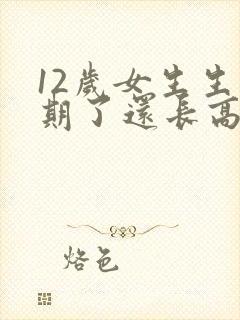 12歲女生生
期了還長高
烙色